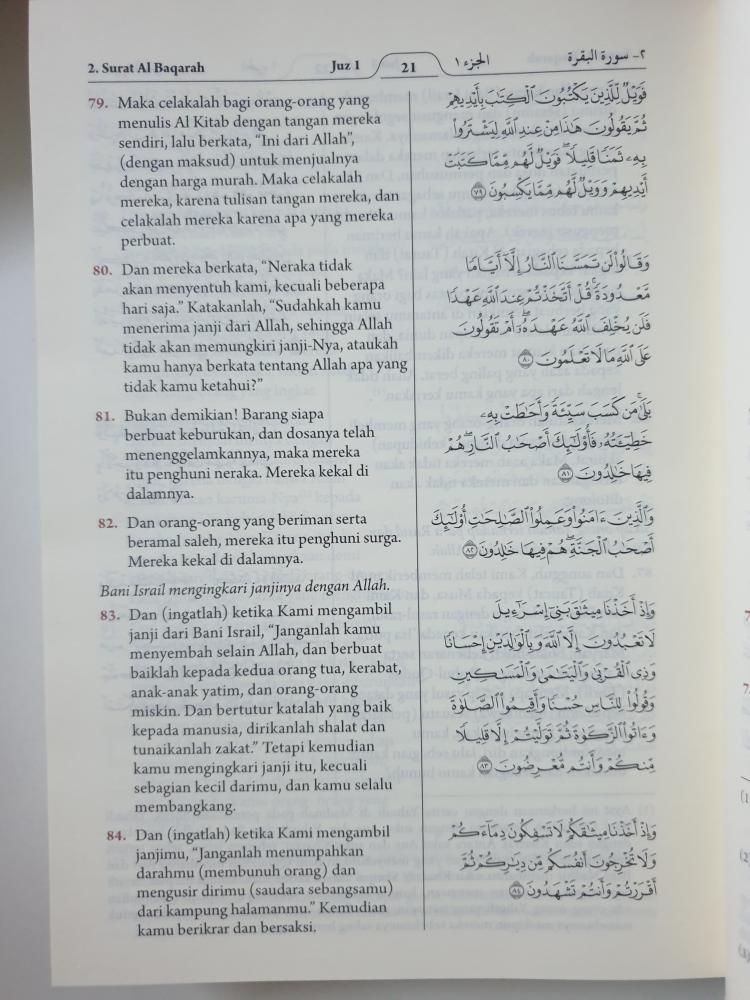 2. Surat Al Baqarah Juz 1 21 الجزء ١ ٢- سورة البقرة
79. Maka celakalah bagi orang-orang yang
menulis Al Kitab dengan tangan mereka
sendiri, lalu berkata, “Ini dari Allah”,
(dengan maksud) untuk menjualnya
dengan harga murah. Maka celakalah
mereka, karena tulisan tangan mereka, dan
celakalah mereka karena apa yang mereka
perbuat.
80. Dan mereka berkata, “Neraka tidak
akan menyentuh kami, kecuali beberapa
hari saja.” Katakanlah, “Sudahkah kamu
menerima janji dari Allah, sehingga Allah
tidak akan memungkiri janji-Nya, ataukah
kamu hanya berkata tentang Allah apa yang
tidak kamu ketahui?”
81. Bukan demikian! Barang siapa
berbuat keburukan, dan dosanya telah
menenggelamkannya, maka mereka
itu penghuni neraka. Mereka kekal di
dalamnya.
82. Dan orang-orang yang beriman serta
beramal saleh, mereka itu penghuni surga.
Mereka kekal di dalamnya.
Bani Israil mengingkari janjinya dengan Allah.
83. Dan (ingatlah) ketika Kami mengambil
janji dari Bani Israil, “Janganlah kamu
menyembah selain Allah, dan berbuat
baiklah kepada kedua orang tua, kerabat,
anak-anak yatim, dan orang-orang
miskin. Dan bertutur katalah yang baik
kepada manusia, dirikanlah shalat dan
tunaikanlah zakat.” Tetapi kemudian
kamu mengingkari janji itu, kecuali
sebagian kecil darimu, dan kamu selalu
membangkang.
84. Dan (ingatlah) ketika Kami mengambil
janjimu, “Janganlah menumpahkan
darahmu (membunuh orang) dan
mengusir dirimu (saudara sebangsamu)
dari kampung halamanmu.” Kemudian
kamu berikrar dan bersaksi.
فَوَيْلٌ لِّلَّذِينَ يَكْتُبُونَ ٱلْكِتَٰبَ بِأَيْدِيهِمْ
ثُمَّ يَقُولُونَ هَٰذَا مِنْ عِندِ ٱللَّهِ لِيَشْتَرُوا۟
بِهِۦ ثَمَنًا قَلِيلًا ۖ فَوَيْلٌ لَّهُم مِّمَّا كَتَبَتْ
أَيْدِيهِمْ وَوَيْلٌ لَّهُم مِّمَّا يَكْسِبُونَ ٧٩
وَقَالُوا۟ لَن تَمَسَّنَا ٱلنَّارُ إِلَّآ أَيَّامًا
مَّعْدُودَةً ۚ قُلْ أَتَّخَذْتُمْ عِندَ ٱللَّهِ عَهْدًا
فَلَن يُخْلِفَ ٱللَّهُ عَهْدَهُۥٓ ۖ أَمْ تَقُولُونَ
عَلَى ٱللَّهِ مَا لَا تَعْلَمُونَ ٨٠
بَلَىٰ مَن كَسَبَ سَيِّئَةً وَأَحَٰطَتْ بِهِۦ
خَطِيٓـَٔتُهُۥ فَأُو۟لَٰٓئِكَ أَصْحَٰبُ ٱلنَّارِ ۖ هُمْ
فِيهَا خَٰلِدُونَ ٨١
وَٱلَّذِينَ ءَامَنُوا۟ وَعَمِلُوا۟ ٱلصَّٰلِحَٰتِ أُو۟لَٰٓئِكَ
أَصْحَٰبُ ٱلْجَنَّةِ ۖ هُمْ فِيهَا خَٰلِدُونَ ٨٢
وَإِذْ أَخَذْنَا مِيثَٰقَ بَنِىٓ إِسْرَٰٓءِيلَ
لَا تَعْبُدُونَ إِلَّا ٱللَّهَ وَبِٱلْوَٰلِدَيْنِ إِحْسَانًا
وَذِى ٱلْقُرْبَىٰ وَٱلْيَتَٰمَىٰ وَٱلْمَسَٰكِينِ
وَقُولُوا۟ لِلنَّاسِ حُسْنًا وَأَقِيمُوا۟ ٱلصَّلَوٰةَ
وَءَاتُوا۟ ٱلزَّكَوٰةَ ثُمَّ تَوَلَّيْتُمْ إِلَّا قَلِيلًا
مِّنكُمْ وَأَنتُم مُّعْرِضُونَ ٨٣
وَإِذْ أَخَذْنَا مِيثَٰقَكُمْ لَا تَسْفِكُونَ دِمَآءَكُمْ
وَلَا تُخْرِجُونَ أَنفُسَكُم مِّن دِيَٰرِكُمْ ثُمَّ
أَقْرَرْتُمْ وَأَنتُمْ تَشْهَدُونَ ٨٤